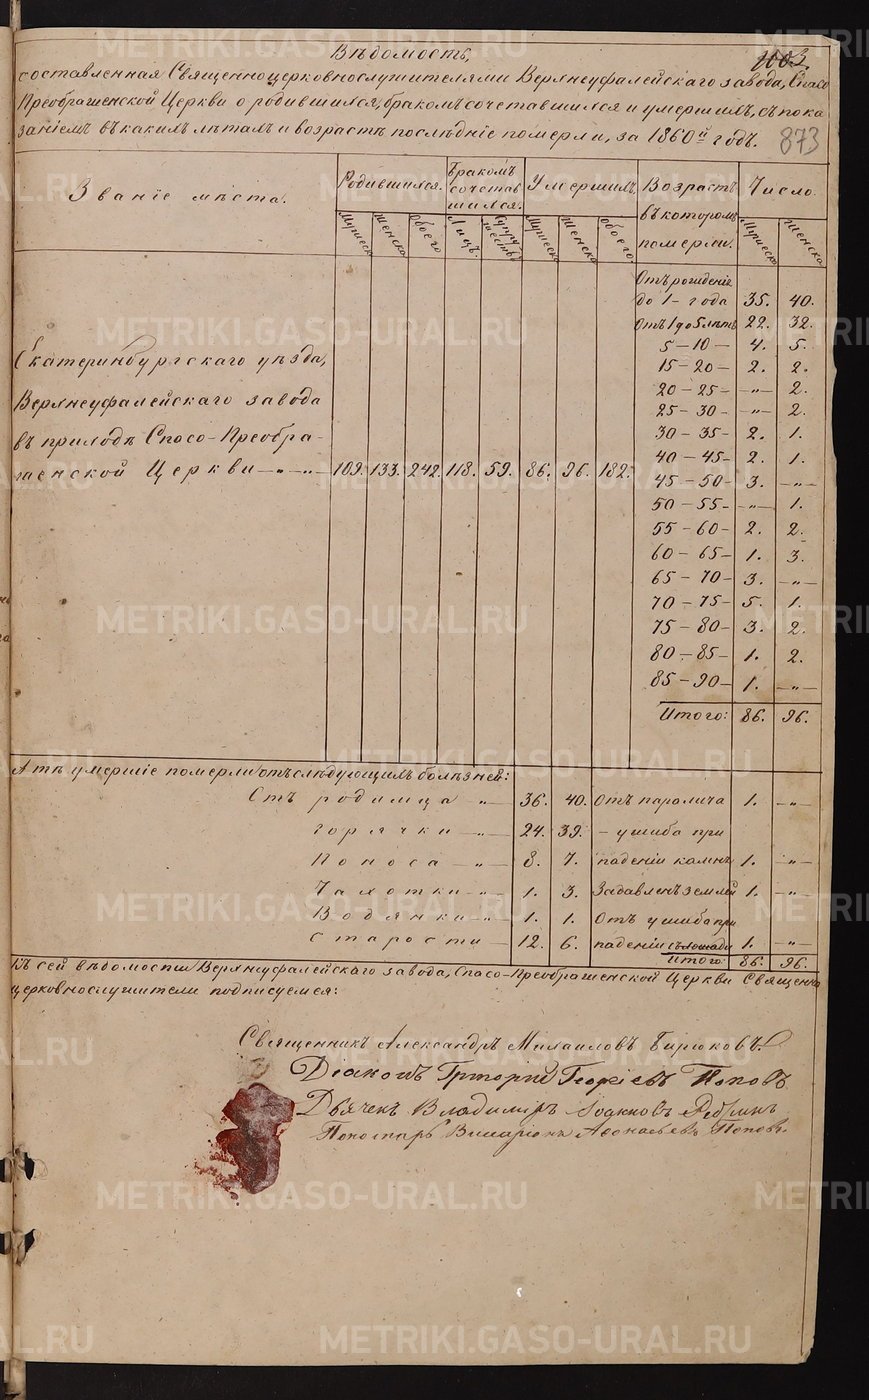 Вѣдомость,
составленная Священноцерковнослужителями Верхнеуфалейскаго завода, Спасо
Преображенской Церкви о родившихся, бракомъ сочетавшихся и умершихъ, съ пока
заніемъ въ какихъ лѣтахъ и возрастѣ послѣдніе померли, за 1860й годъ.
873
Званіе мѣста. Родившихся. Бракомъ сочетавшихся. Умершихъ. Возрастъ въ которомъ померли. Число.
Мужеска Женска Обоего Лицъ. Супружествъ Мужеска Женска Обоего. Мужеска Женска
Отъ рожденія
до 1- года 35. 40.
Отъ 1 до 5 лѣтъ 22. 32.
5-10- 4. 5.
15-20- 2. 2.
20-25- -„- 2.
25-30- -„- 2.
30-35- 2. 1.
40-45- 2. 1.
45-50- 3. -„-
50-55- -„- 1.
55-60- 2. 2.
60-65- 1. 3.
65-70- 3. -„-
70-75- 5. 1.
75-80- 3. 2.
80-85- 1. 2.
85-90- 1. -„-
Итого: 86. 96.
Екатеринбургскаго уѣзда,
Верхнеуфалейскаго завода
въ приходѣ Спасо-Преобра-
женской Церкви -„-„- 109. 133. 242. 118. 59. 86. 96. 182.
А тѣ умершіе померли отъ слѣдующихъ болѣзней:
Отъ родимца -„- 36. 40. Отъ паролича 1. -„-
Горячки -„- 24. 39. - ушиба при
Поноса -„- 8. 7. паденіи камнѣ 1. -„-
Чахотки -„- 1. 3. Задавленъ землей 1. -„-
Водянки „- 1. 1. Отъ ушиба при
Старости - 12. 6. паденіи съ лошади 1. -„-
Итого: 86. 96.
Къ сей вѣдомости Верхнеуфалейскаго завода, Спасо-Преображенской Церкви Священно
церковнослужители подписуемся:
Священникъ Александръ Михаиловъ Бирюковъ.
Діаконъ Григорій Георгіевъ Поповъ
Дьячекъ Владимиръ
Пономарь Виларіонъ Аѳонасьевъ Поповъ.
METRIKI.GASO-URAL.RU